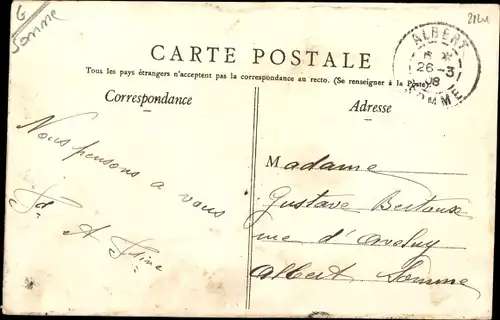 6
Somme
CARTE POSTALE
Tous les pays étrangers n'acceptent pas la correspondance au recto. (Se renseigner à la Poste).
Correspondance
Nous pensons a vous
A
Adresse
ALBERT
26-3
08
SOMME
Madame
Gustave
rue d'Aveluy
Albert Somme